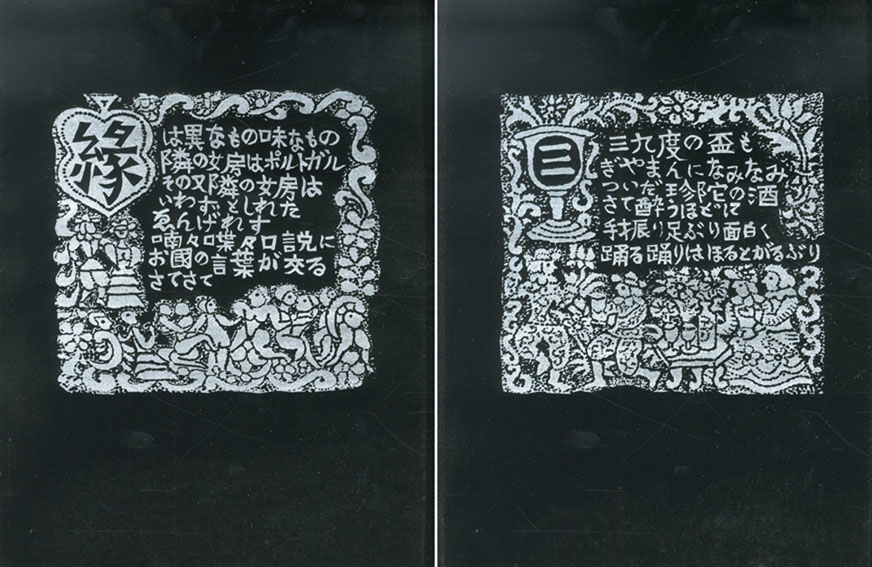 縁
は異なもの味なもの
隣の女房はポルトガル
その又隣の女房は
いわずとしれた
ゑんげれす
喃々喋々口説に
お國の言葉が交る
さてさて
三
三九度の盃も
ぎやまんになみなみ
ついだ珍陀の酒
さて酔うほどに
手振り足ぶり面白く
踊る踊りはほるとがるぶり